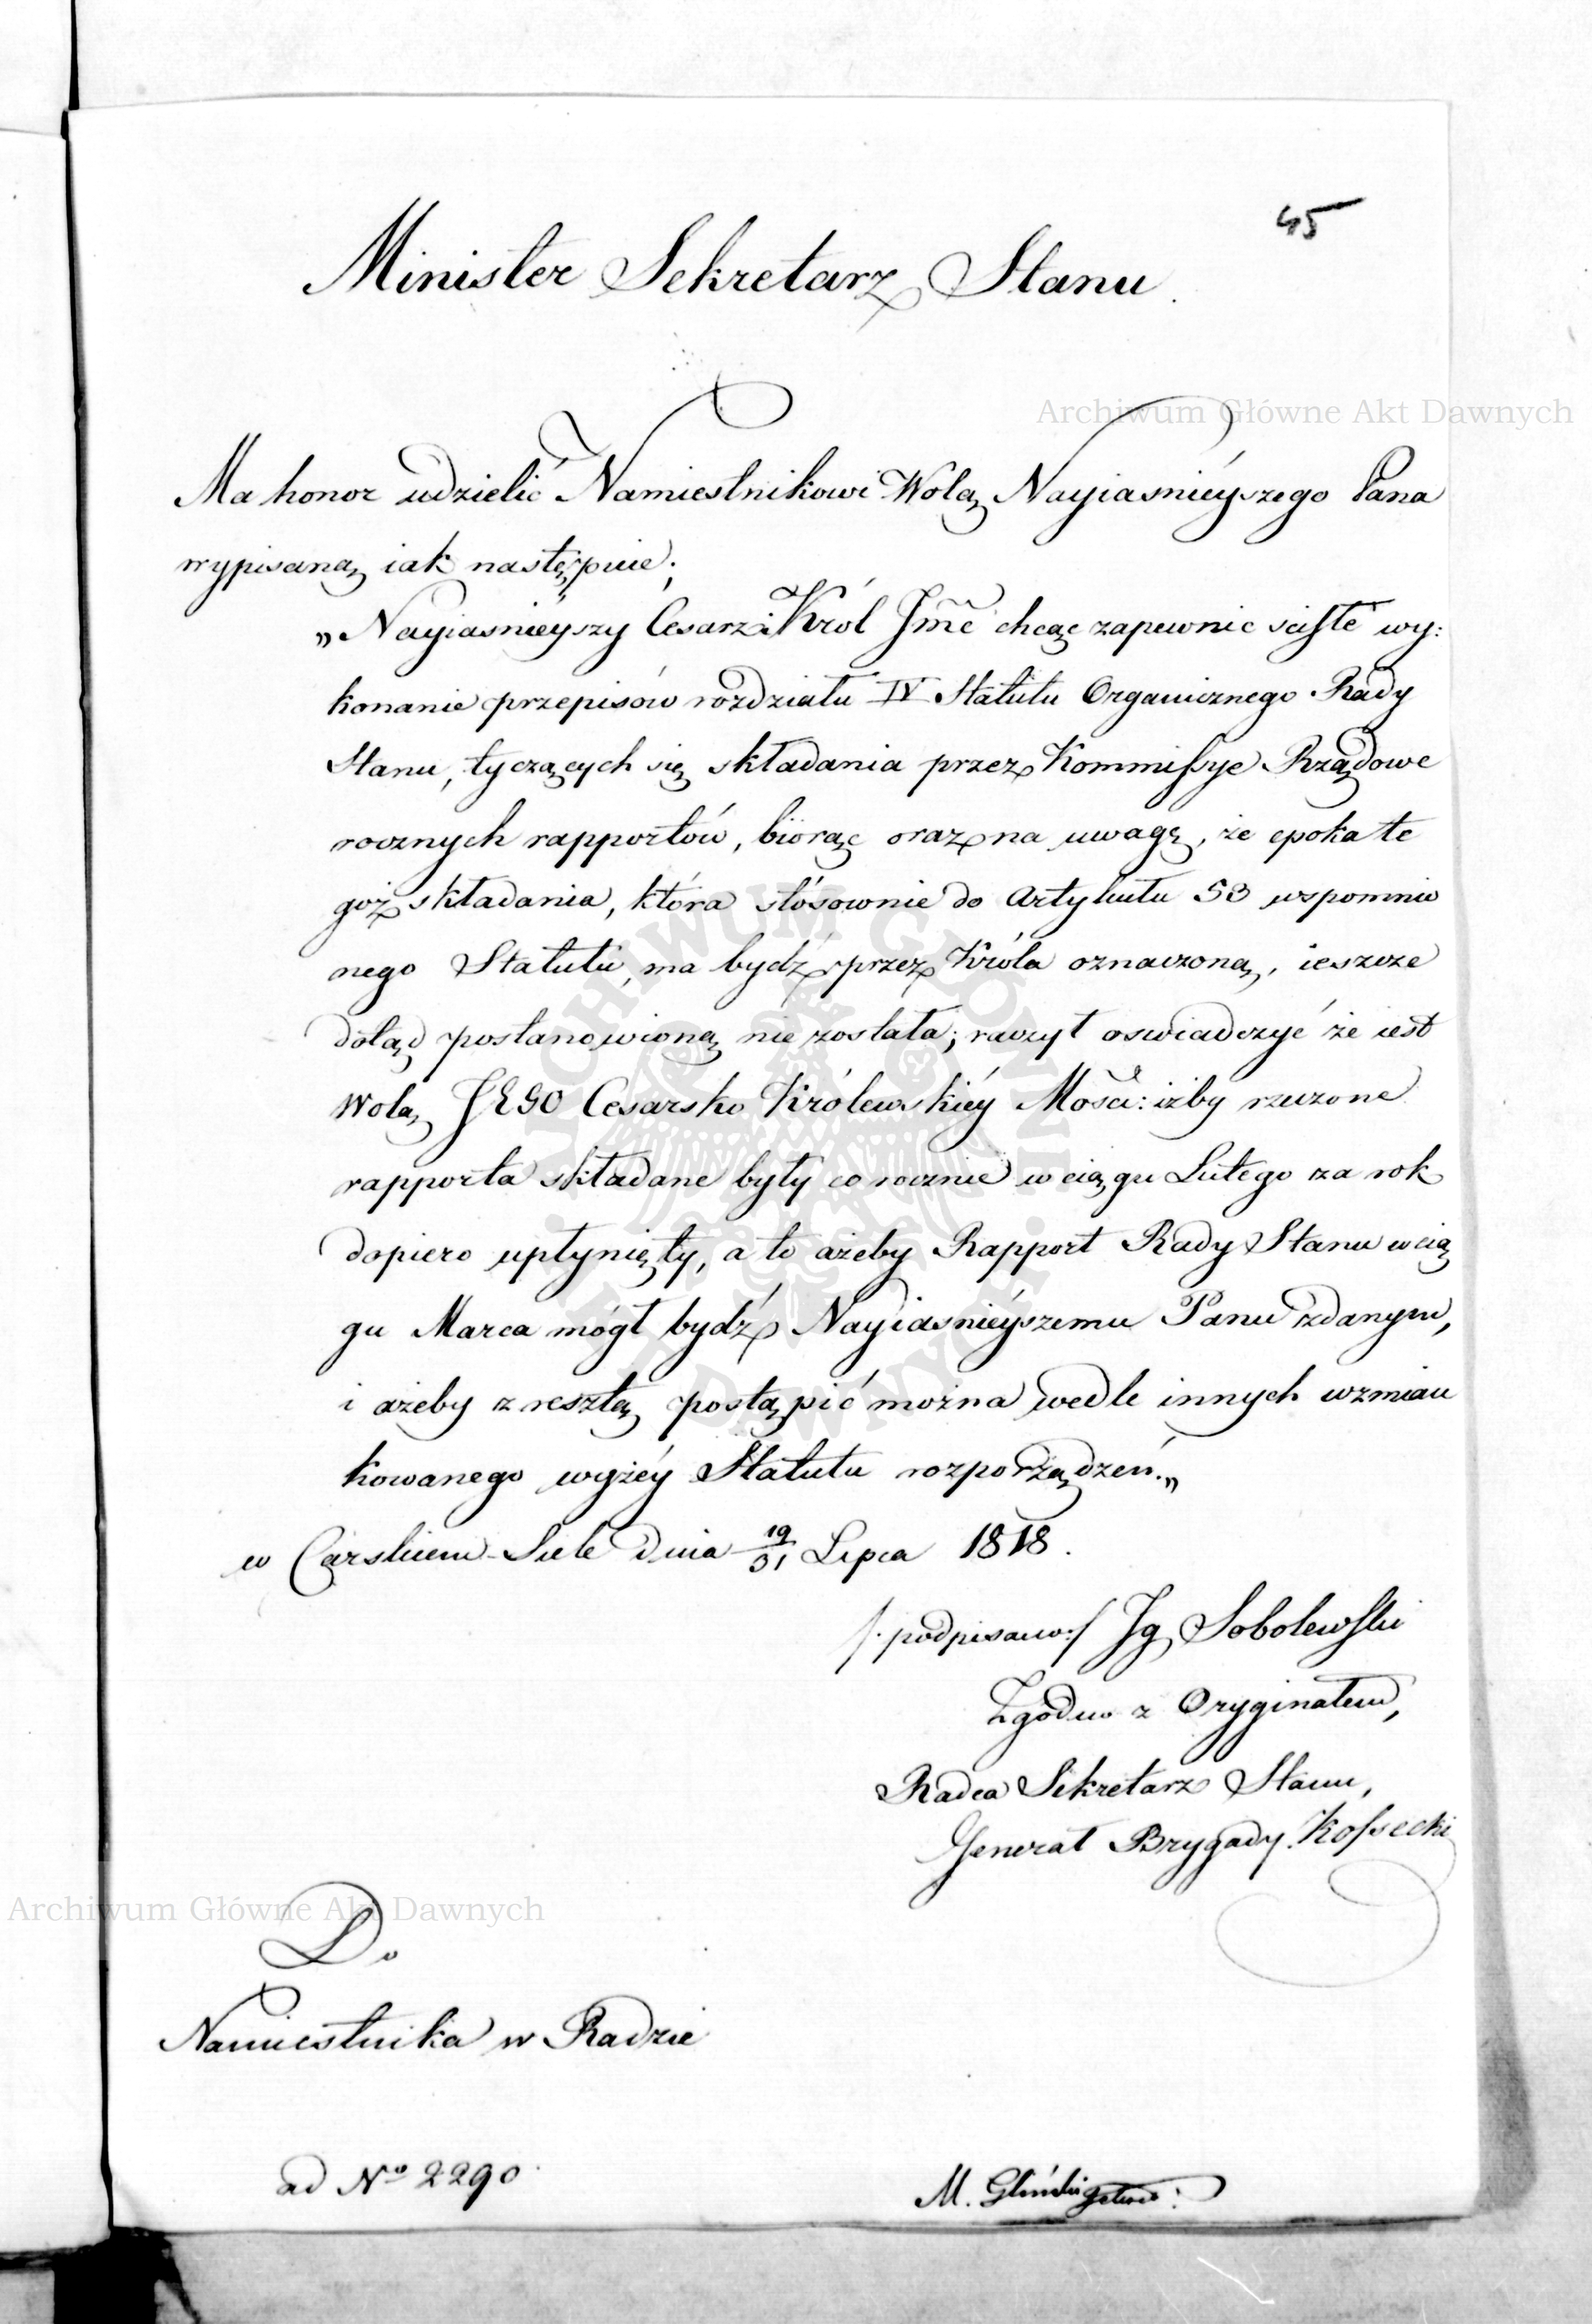 45
Minister Sekretarz Stanu.
Archiwum Główne Akt Dawnych
Ma honor udzielić Namiestnikowi Wolą Nayiaśnieyszego Pana
wypisaną iak następuie;
„Nayiaśnieyszy Cesarz i Król Jmć chcąc zapewnić ścisłe wy:
konanie przepisów rozdziału IV Statutu Organicznego Rady
Stanu, tyczących się składania przez Kommissye Rządowe
rocznych rapportów, biorąc oraz na uwagę, że epoka te
goż składania, która stósownie do Artykułu 53 wspomnio
nego Statutu, ma bydź przez Króla oznaczoną, ieszcze
dotąd postanowioną nie została; raczył oswiadczyć że iest
Wolą JEGO Cesarsko Królewskiéy Mości: iżby rzeczone
rapporta składane były co rocznie w ciągu Lutego za rok
dopiero upłynięty, a to ażeby Rapport Rady Stanu w cią
gu Marca mógł bydź Nayiaśniéyszemu Panu zdanym,
i ażeby z resztą postąpić można wedle innych wzmian
kowanego wyżéy Statutu rozporządzeń.„
w Carskiem-Siele dnia 19/31 Lipca 1818.
/:podpisano:/ Jg. Sobolewski
Zgodno z Oryginałem,
Radca Sekretarz Stanu,
Generał Brygady. Kossecki
Archiwum Główne Akt Dawnych
Do
Namiestnika w Radzie
ad No 2290.
M. Gliński